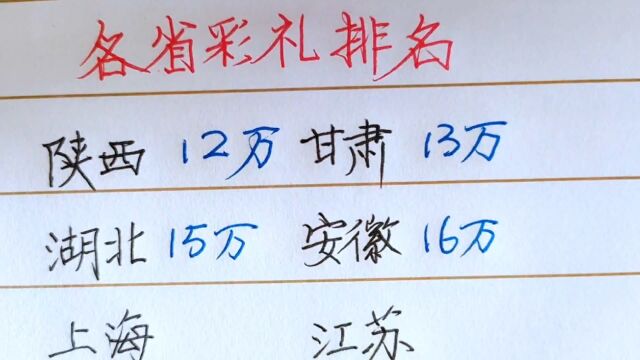 各省彩礼排名
陕西 12万 甘肃 13万
湖北 15万 安徽 16万
上海 江苏